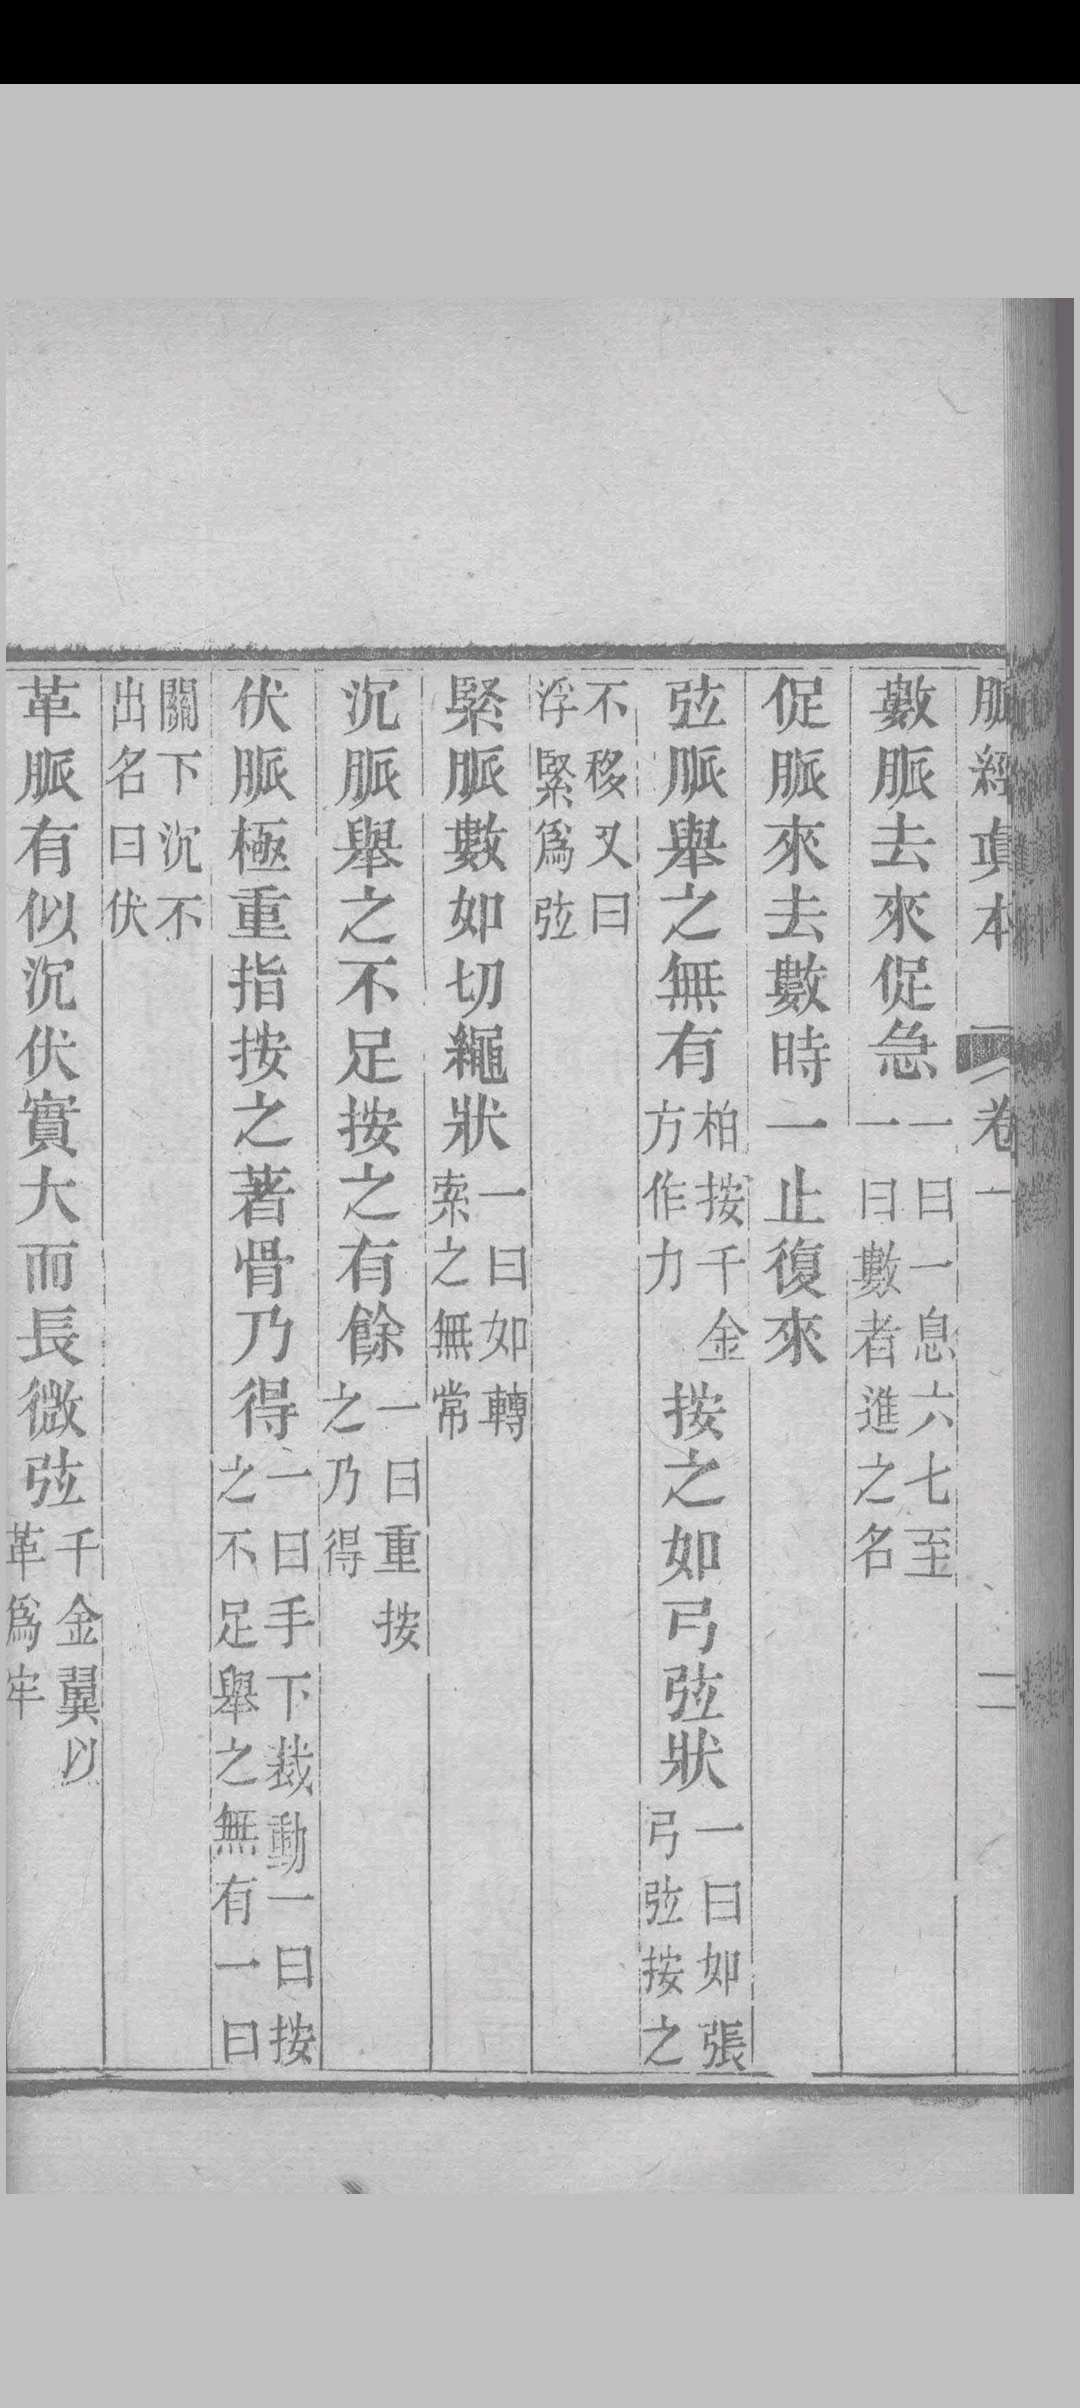 脈經真本　卷一　二
數脈去來促急一曰一息六七至一曰數者進之名
促脈來去數時一止復來
弦脈舉之無有柏按千金方作力按之如弓弦狀一曰如張弓弦按之
不移又曰浮緊爲弦
緊脈數如切繩狀一曰如轉索之無常
沉脈舉之不足按之有餘一曰重按之乃得
伏脈極重指按之著骨乃得一曰手下裁動一曰按之不足舉之無有一曰
關下沉不出名曰伏
革脈有似沉伏實大而長微弦千金翼以革爲牢